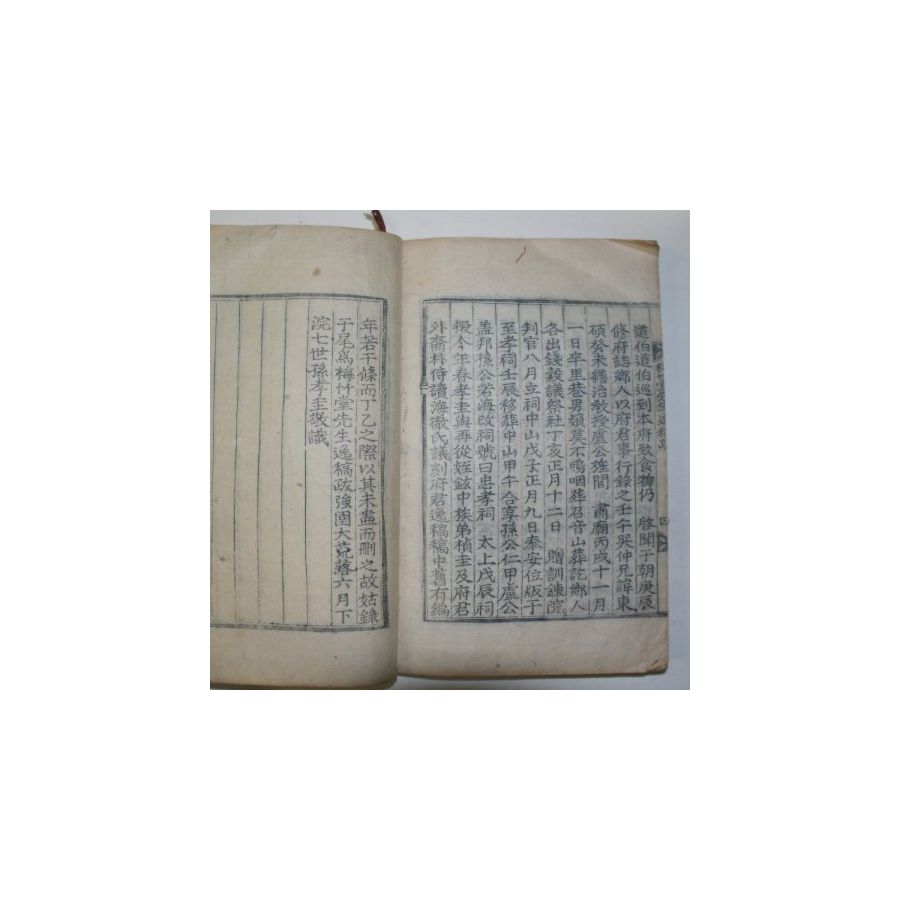 道伯道伯巡到本府致食物仍 啓聞于朝庚辰
修府誌鄉人以府君事行錄之壬午哭仲兄諱東
碩癸未繕治敎授盧公 閭 肅廟丙戌十一月
一日卒里巷男嬪莫不嗚咽葬召音山葬訖鄉人
各出錢穀議祭社丁亥正月十二日 贈訓鍊院
判官八月立祠中山戊子正月九日奉安位版于
至孝祠壬辰移葬中山甲午合享孫公仁甲盧公
盖邦後公若海改祠號曰忠孝祠 太上戊辰祠
撤今年春孝圭與再從姪鉉中族弟楨圭及府君
外裔朴侍讀海徹氏議刻府君逸稿稿中舊有編
年若干條而丁乙之際以其未盡而刪之故姑錄
于尾爲梅竹堂先生逸稿政強圉大荒落六月下
浣七世孫孝圭敬識
四